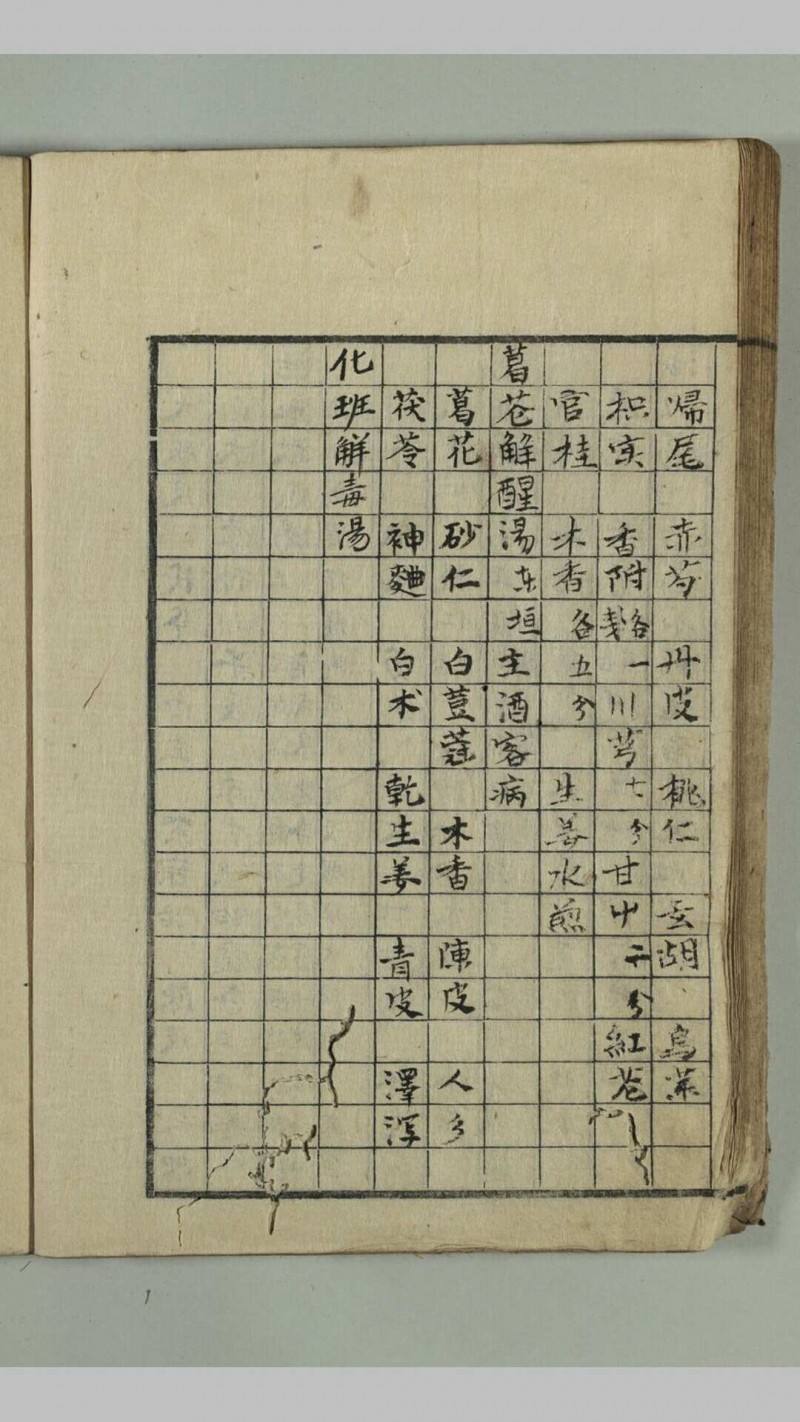 帰尾 赤芍 丹皮 桃仁 玄胡 烏薬
枳实 香附各一戔 川芎七分 甘屮二分 紅花
官桂 木香各五分 生姜水煎
葛花解醒湯 东垣 主酒客病
葛花 砂仁 白荳蔲 木香 陳皮 人參
茯苓 神麯 白术 乾生姜 青皮 澤泻
化班解毒湯